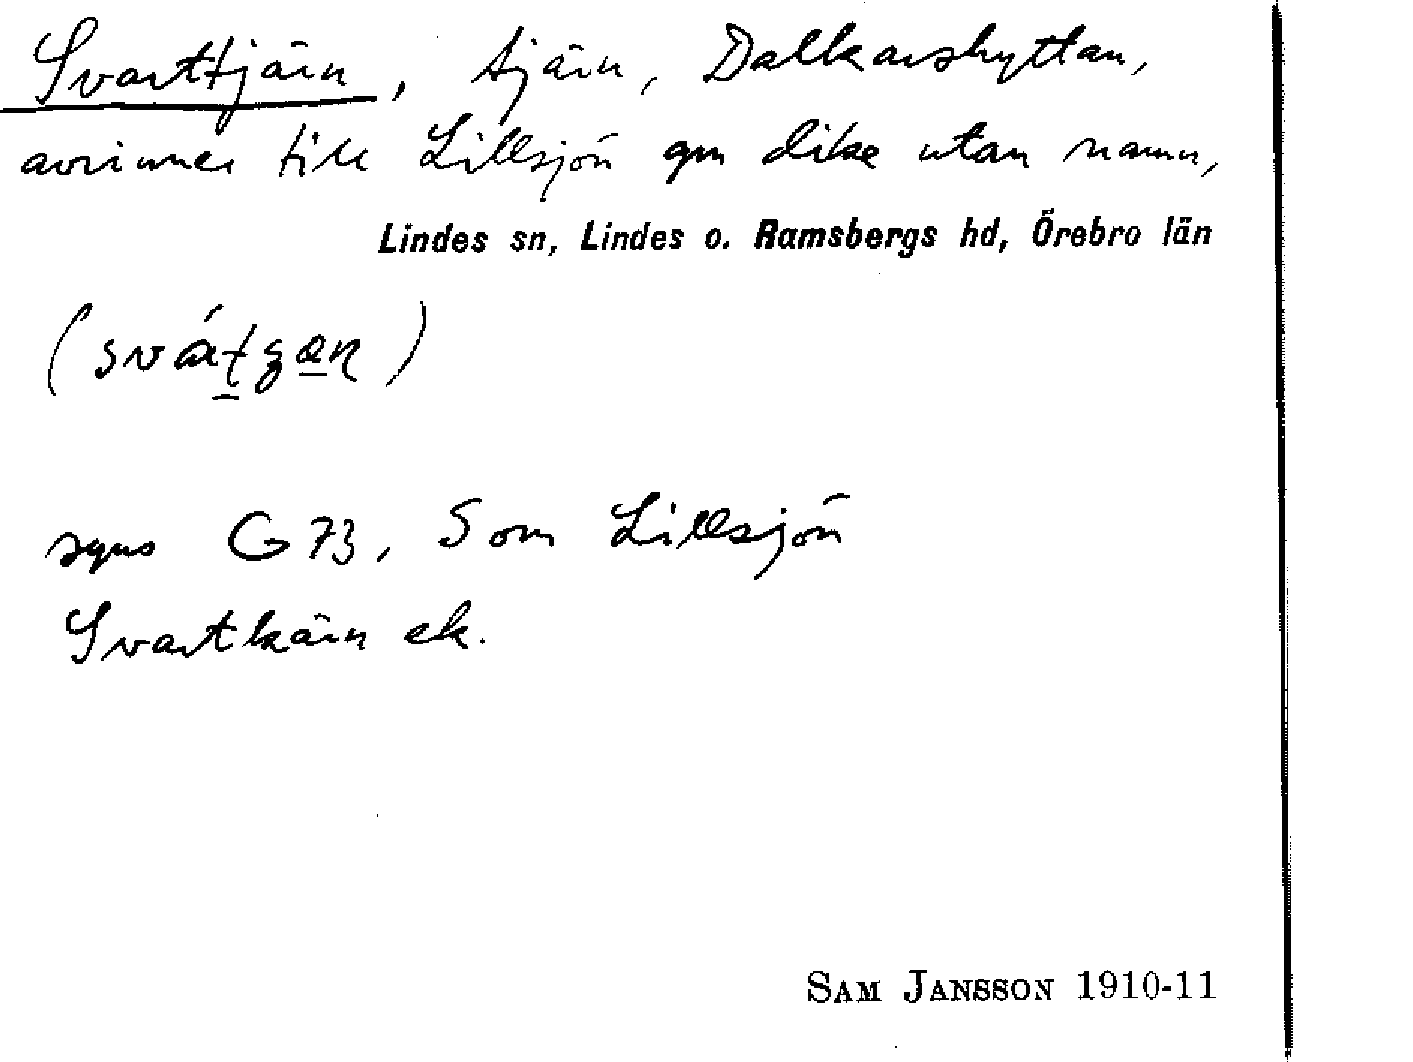 Svarttjärn, tjärn, Dalkarshyttan,
avrinner till Lillsjön gm dike utan namn,
Lindes sn, Lindes o. Ramsbergs hd, Örebro län
Som Lillsjön
Svartkärn ek.
SAM JANSSON 1910-11